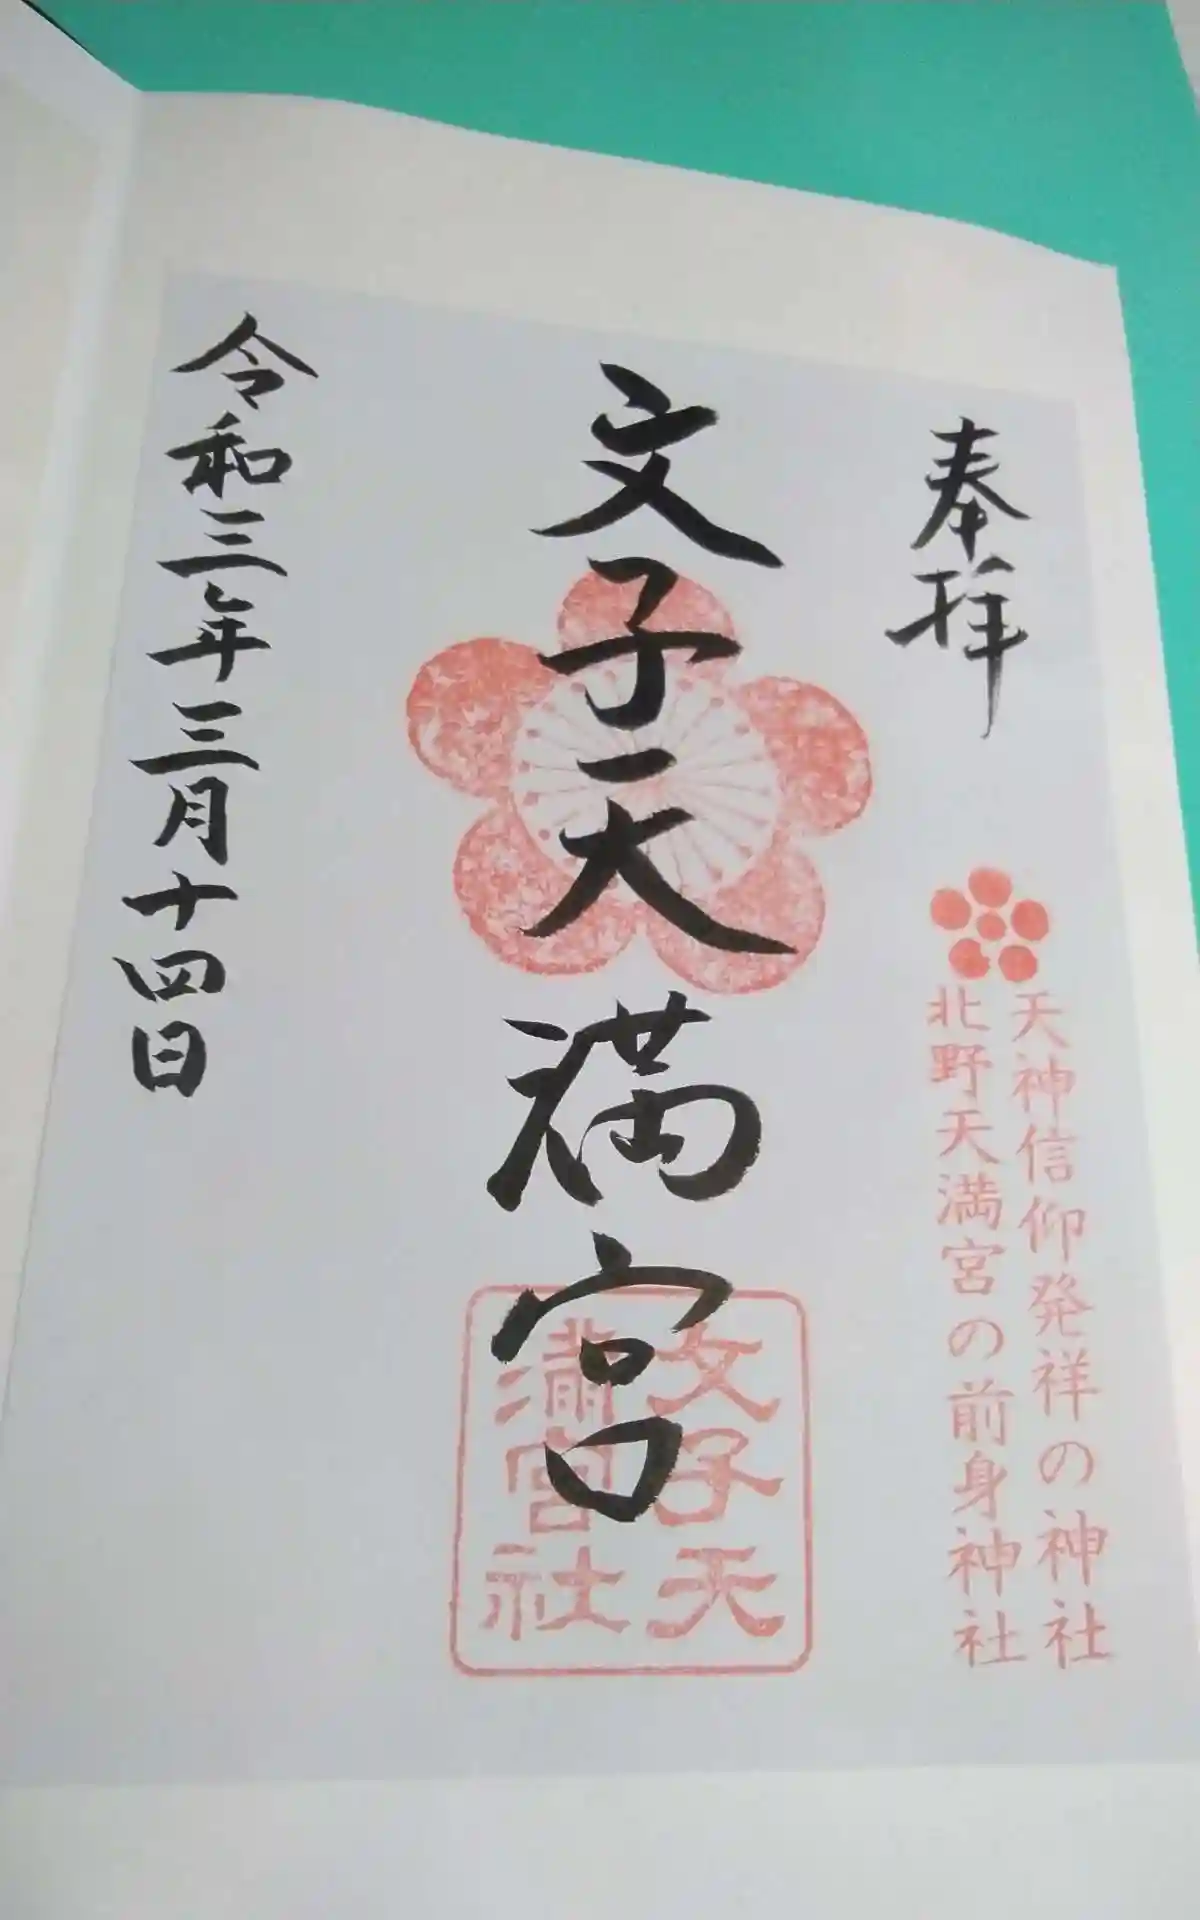 奉拝
天神信仰発祥の神社
北野天満宮の前身神社
文子天満宮
文子天
満宮社
令和三年三月十四日